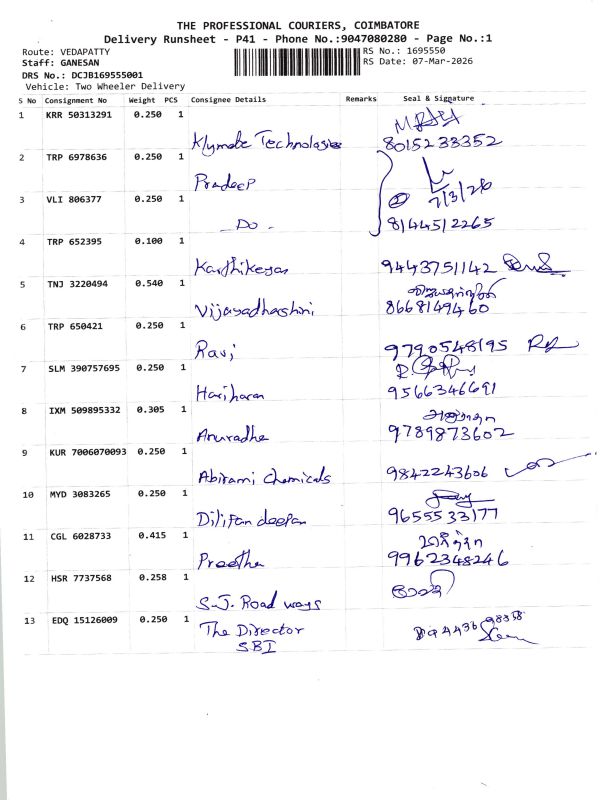 THE PROFESSIONAL COURIERS, COIMBATORE
Delivery Runsheet - P41 - Phone No.:9047080280 - Page No.:1
Route: VEDAPATTY
RS No.: 1695550
Staff: GANESAN
RS Date: 07-Mar-2026
DRS No.: DCJB169555001
Vehicle: Two Wheeler Delivery
S No Consignment No Weight PCS Consignee Details Remarks Seal & Signature
1 KRR 50313291 0.250 1
Klymate Technologies 8015233352
2 TRP 6978636 0.250 1
Pradeep 7/3/26
3 VLI 806377 0.250 1
- Do - 8144512265
4 TRP 652395 0.100 1
Karthikeyan 9443751142
5 TNJ 3220494 0.540 1
Vijayadharshini 8668149460
6 TRP 650421 0.250 1
Ravi 9790548195
7 SLM 390757695 0.250 1
Hariharan 9566346691
8 IXM 509895332 0.305 1
Anuradha 9789873602
9 KUR 7006070093 0.250 1
Abirami Chemicals 9842243606
10 MYD 3083265 0.250 1
Dilipan deepan 9655533177
11 CGL 6028733 0.415 1
Preetha 9962348246
12 HSR 7737568 0.258 1
S.J. Road ways
13 EDQ 15126009 0.250 1
The Director
SBI